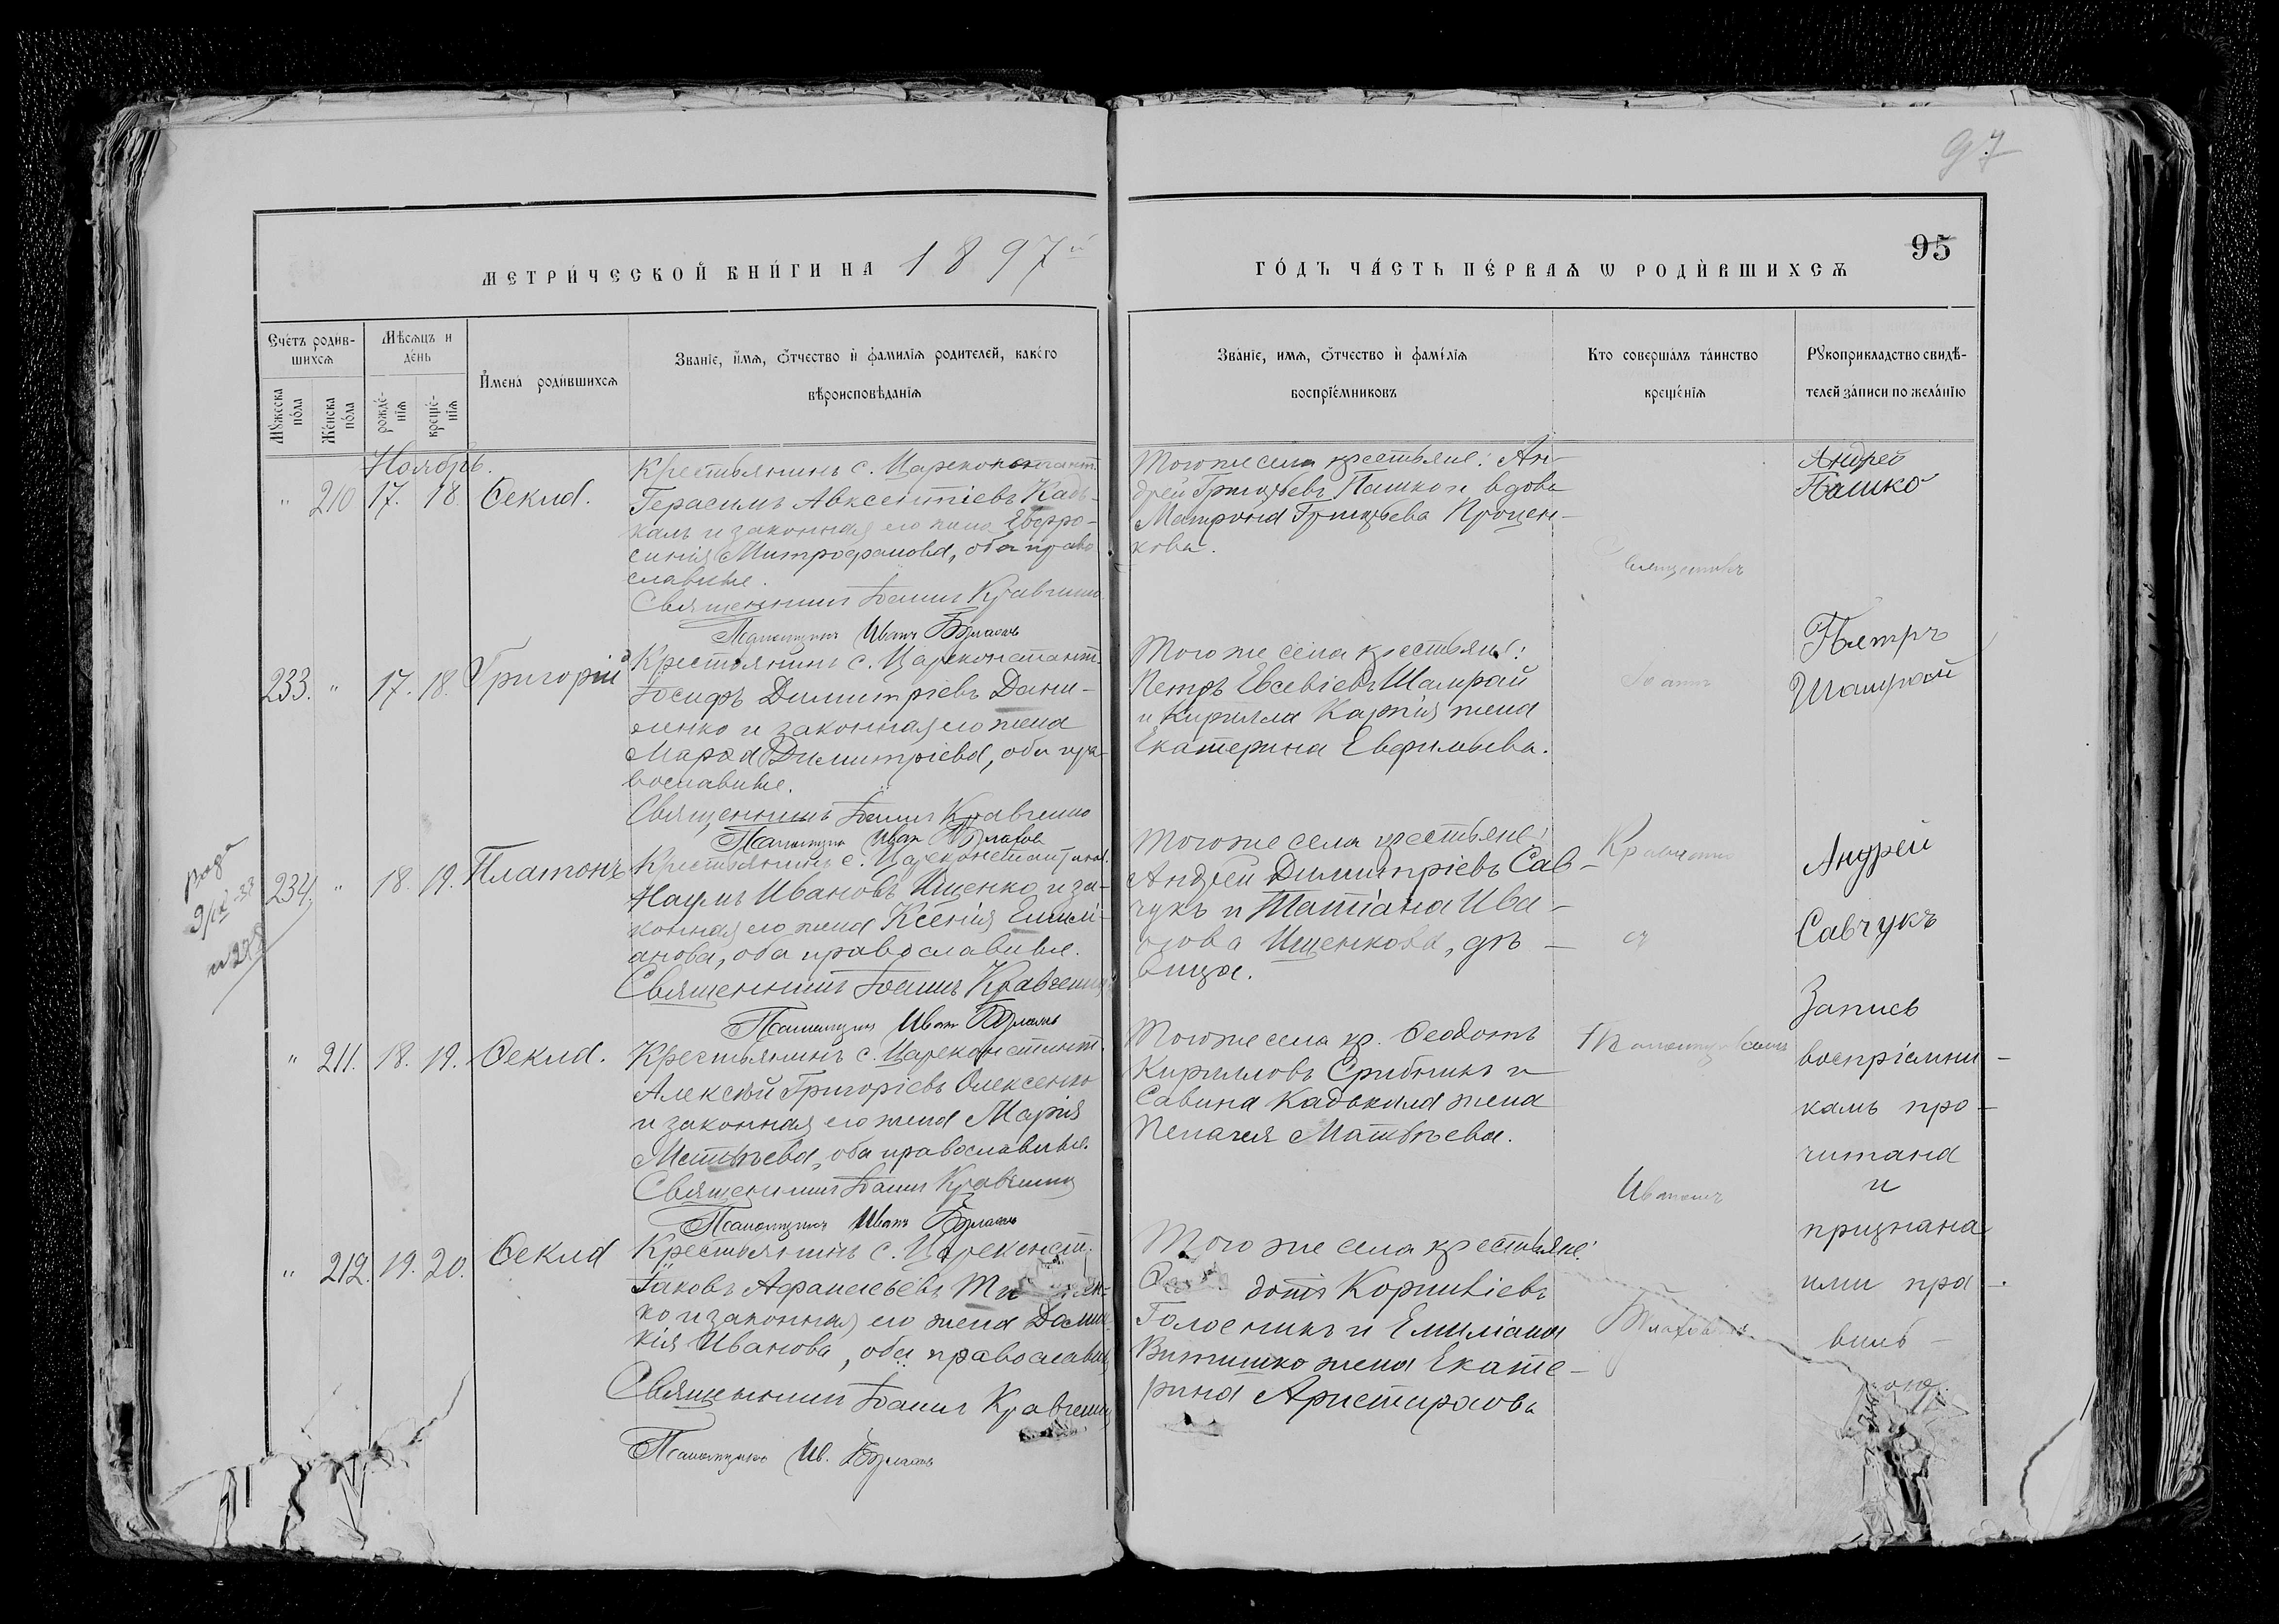 97
95
МЕТРИ́ЧЕСКОЙ КНИ́ГИ НА 1897й
ГО́ДЪ ЧА́СТЬ ПЕ́РВАѦ Ѡ РОДИ́ВШИХСѦ
Сче́тъ роди́в-
шихсѧ
Мѣ́сѧцъ и
де́нь
Мꙋ́жеска
по́ла
Же́нска
по́ла
рожде́-
нїѧ
креще́-
нїѧ
И҆мена̀ роди́вшихсѧ
Зва́нїе, и҆́мѧ, ѻ҆́тчество и҆ фами́лїѧ роди́телей, како́го
вѣроисповѣ́данїѧ
Зва́нїе, имѧ, ѻ҆́тчество и҆ фами́лїѧ
воспрїе́мниковъ
Кто соверша́лъ та́инство
креще́нїѧ
Рꙋкоприкла́дство свидѣ́-
телей за́писи по жела́нїю
Ноябрь.
" 210 17. 18. Ѳекла.
Крестьянинъ с. Цареконстант.
Герасимъ Авксентіевъ Кадь-
калъ и законная его жена Евфро-
синія Митрофанова, оба право
славные.
Священникъ Іоаннъ Кравченко
Псаломщикъ Иванъ
Того же села крестьяне: Ан-
дрей Григорьевъ Пашко и вдова
Матрона Григорьева Процен-
кова.
Священникъ
Андрей
Пашко
233. " 17. 18. Григорій
Крестьянинъ с. Цареконстант.
Іосифъ Димитріевъ Дани-
ленко и законная его жена
Марѳа Димитріева, оба пра-
вославные.
Священникъ Іоаннъ Кравченко
Псаломщикъ Иванъ
Того же села крестьяне:
Петръ Евсевіевъ Шамрай
и Кирилла Карпія жена
Екатерина Евфимьева.
Іоаннъ
Петръ
Шамрай
234. " 18. 19. Платонъ
Крестьянинъ с. Цареконстантинов.
Наумъ Ивановъ Ищенко и за-
конная его жена Ксенія Емилі-
анова, оба православные.
Священникъ Іоаннъ Кравченко
Псаломщикъ Иванъ
Того же села крестьяне:
Андрей Димитріевъ Сав-
чукъ и Татіана Ива-
нова Ищенкова, дѣ-
вица.
Кравченко
съ
Андрей
Савчукъ
" 211. 18. 19. Ѳекла.
Крестьянинъ с. Цареконстант.
Алексѣй Григоріевъ Олексенко
и законная его жена Марія
Матвѣева, оба православные.
Священникъ Іоаннъ Кравченко
Псаломщикъ Иванъ
Того же села кр. Ѳеодотъ
Кирилловъ Срибникъ и
Савина Кадькала жена
Пелагея Матвѣева.
Псаломщикомъ
Иваномъ
Запись
воспріемни-
камъ про-
читана
и
признана
ими пра-
виль-
ною.
" 212. 19. 20. Ѳекла
Крестьянинъ с. Цареконст.
Іаковъ Аѳанасьевъ
ко и законная его жена Домни-
кія Иванова, оба православны
Священникъ Іоаннъ Кравченко
Псаломщикъ Ив.
Того же села крестьяне:
дотъ Корниліевъ
и Емиліана
жена Екате-
рина Аристархова